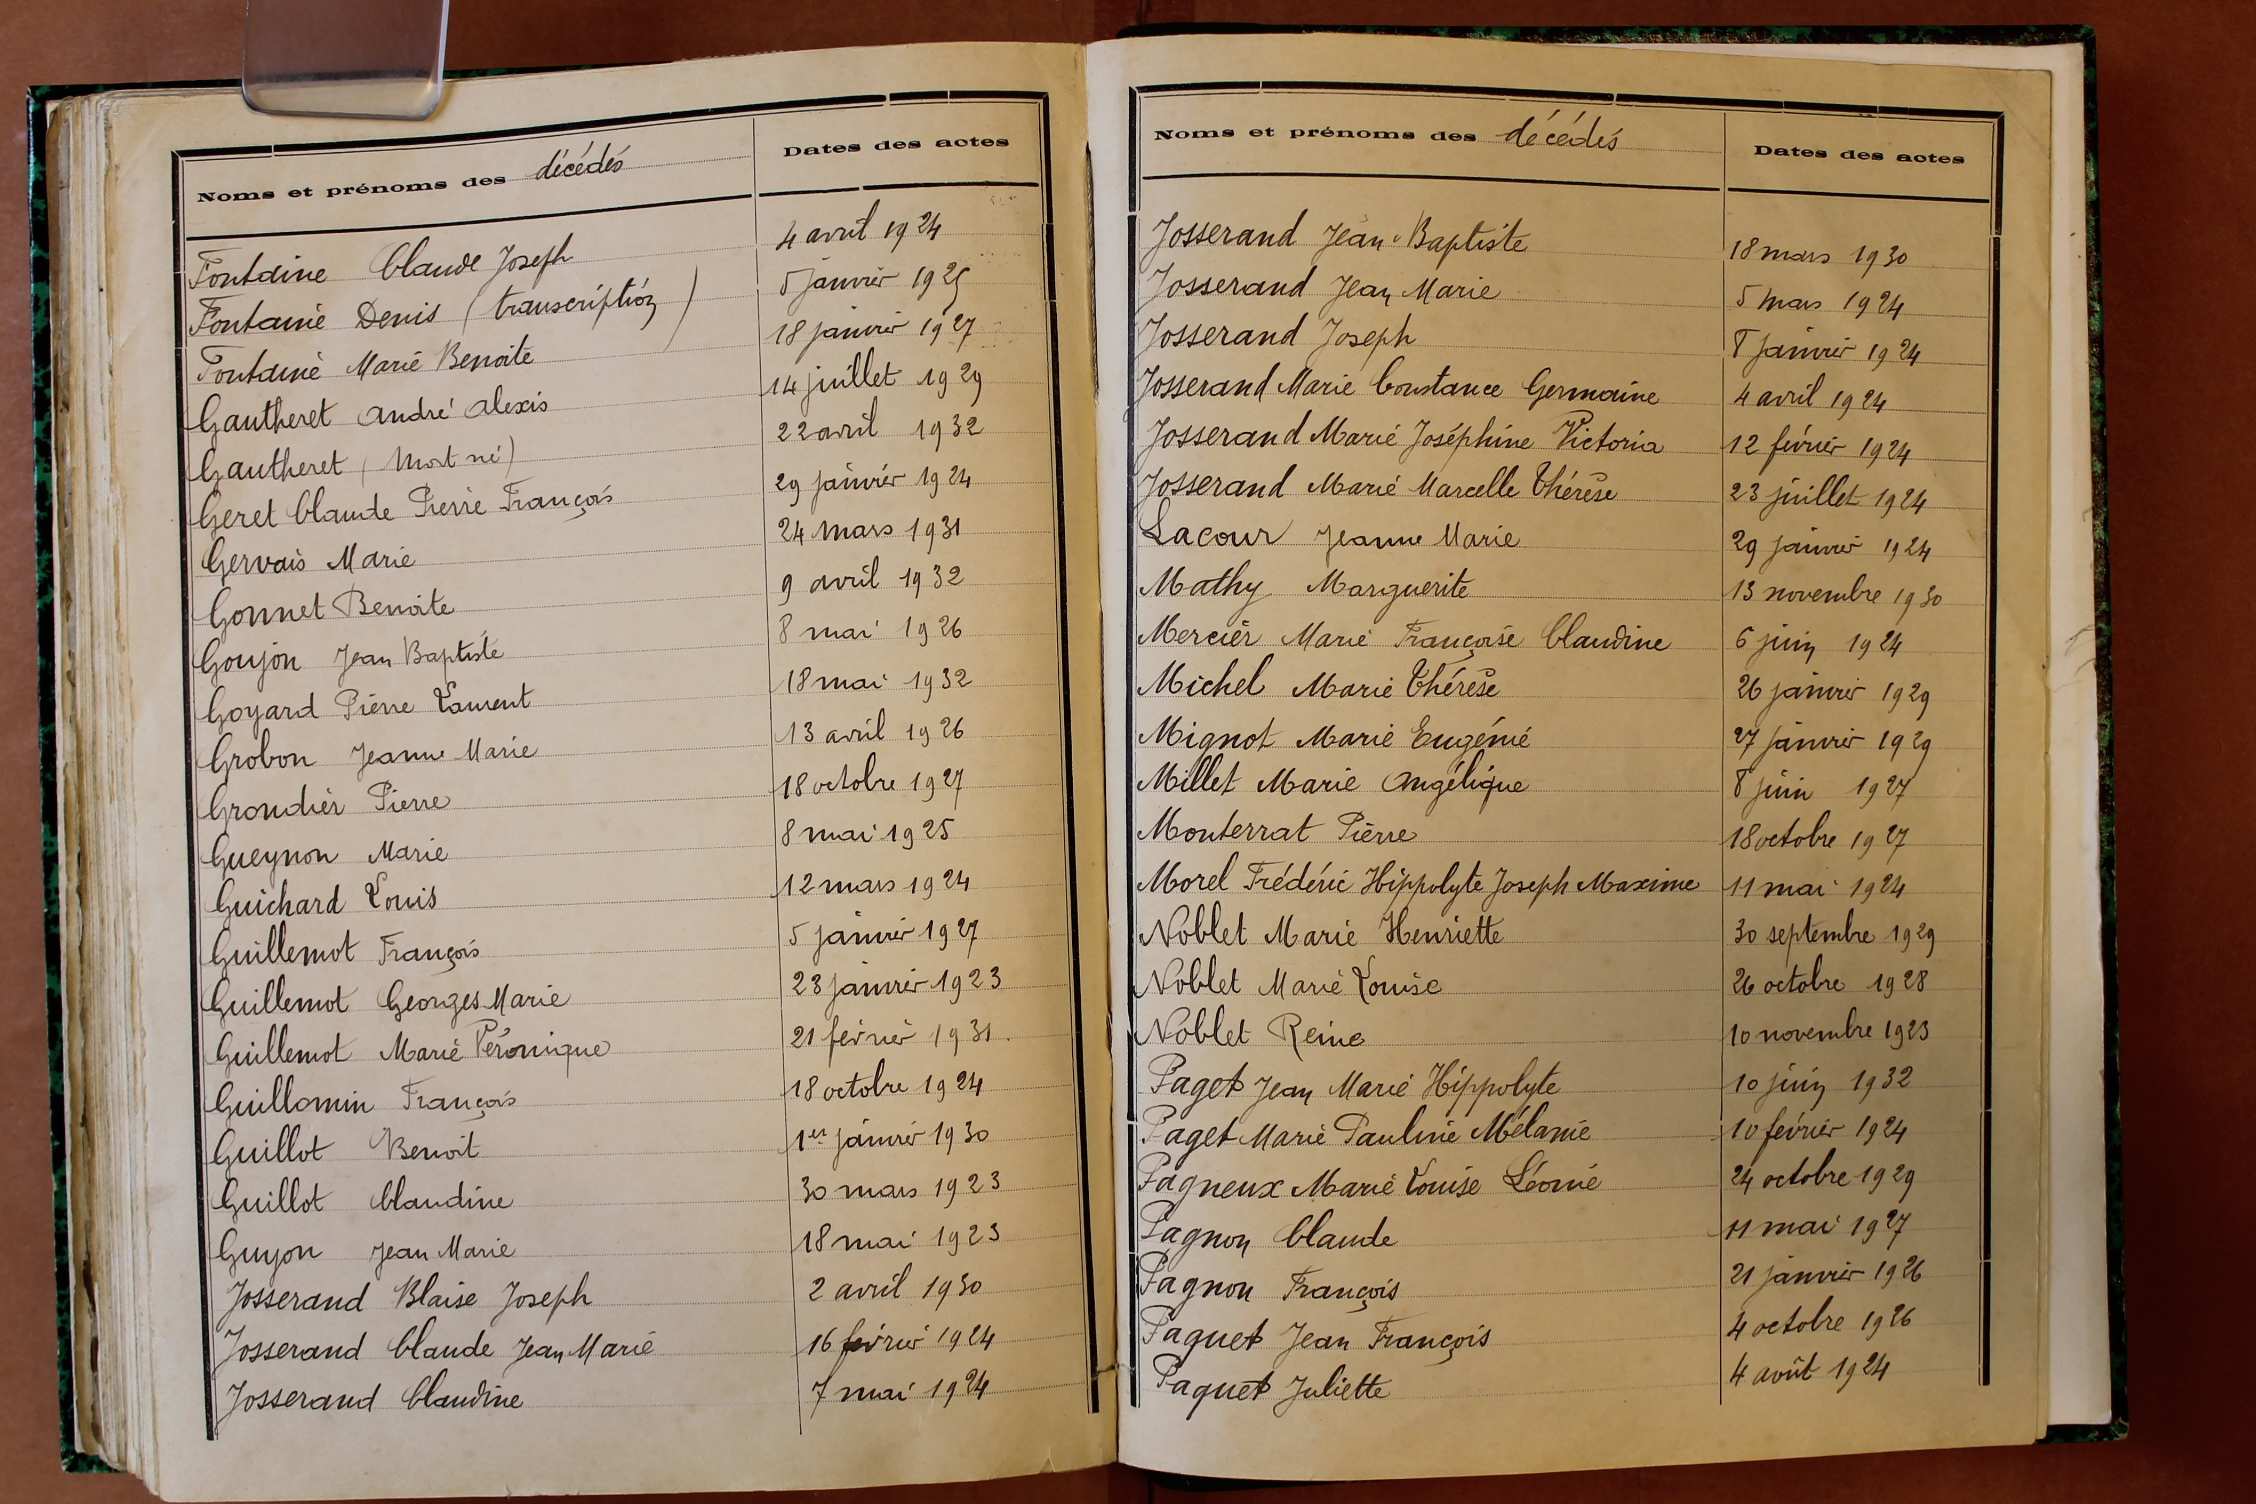 Noms et prénoms des décédés Dates des actes
Fontaine Claude Joseph 4 avril 1924
Fontaine Denis (transcription) 5 janvier 1925
Fontaine Marie Benoite 18 janvier 1927
Gautheret André Alexis 14 juillet 1929
Gautheret (Mort né) 22 avril 1932
Geret Claude Pierre François 29 janvier 1924
Gervais Marie 24 mars 1931
Gonnet Benoite 9 avril 1932
Goujon Jean Baptiste 8 mai 1926
Goyard Pierre Laurent 18 mai 1932
Grobon Jeanne Marie 13 avril 1926
Grondier Pierre 18 octobre 1927
Gueynon Marie 8 mai 1925
Guichard Louis 12 mars 1924
Guillemot François 5 janvier 1927
Guillemot Georges Marie 23 janvier 1923
Guillemot Marie Véronique 21 février 1931.
Guillomin François 18 octobre 1924
Guillot Benoit 1er janvier 1930
Guillot Claudine 30 mars 1923
Guyon Jean Marie 18 mai 1923
Josserand Blaise Joseph 2 avril 1930
Josserand Claude Jean Marie 16 février 1924
Josserand Claudine 7 mai 1924
Noms et prénoms des décédés Dates des actes
Josserand Jean-Baptiste 18 mars 1930
Josserand Jean Marie 5 mars 1924
Josserand Joseph 8 janvier 1924
Josserand Marie Constance Germaine 4 avril 1924
Josserand Marie Joséphine Victoria 12 février 1924
Josserand Marie Marcelle Thérèse 23 juillet 1924
Lacour Jeanne Marie 29 janvier 1924
Mathy Marguerite 13 novembre 1930
Mercier Marie Françoise Claudine 6 juin 1924
Michel Marie Thérèse 26 janvier 1929
Mignot Marie Eugénie 27 janvier 1929
Millet Marie Angélique 8 juin 1927
Monterrat Pierre 18 octobre 1927
Morel Frédéric Hippolyte Joseph Maxime 11 mai 1924
Noblet Marie Henriette 30 septembre 1929
Noblet Marie Louise 26 octobre 1928
Noblet Reine 10 novembre 1923
Paget Jean Marie Hippolyte 10 juin 1932
Paget Marie Pauline Mélanie 10 février 1924
Pagneux Marie Louise Léonie 24 octobre 1929
Pagnon Claude 11 mai 1927
Pagnon François 21 janvier 1926
Paquet Jean François 4 octobre 1926
Paquet Juliette 4 août 1924